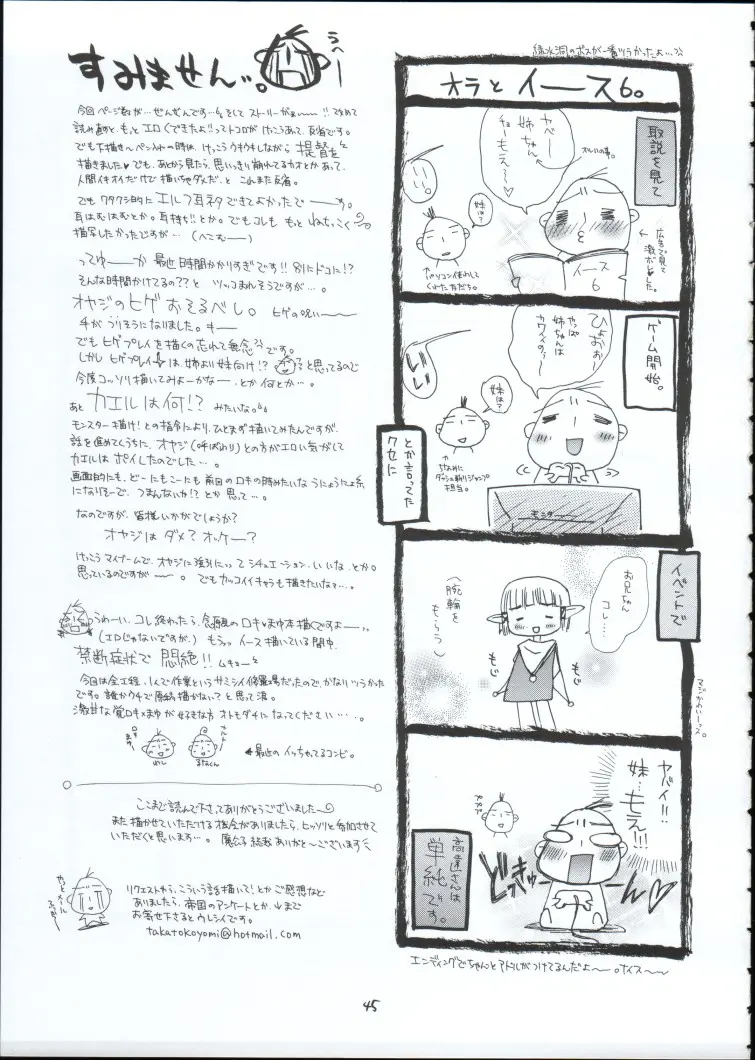 すみません…。
うへー
今回ページ数が…ぜんぜんです…そしてストーリーがぁー!!改めて
読み直すと、もっとエロくできたよ!!ってトコロがけっこうあって、反省です。
でも下描き〜ペン入れの時は、けっこうウキウキしながら提督を
描きました♥でも、あとから見たら、思いっきり崩れてるカオとかあって、
人間イキオイだけで描いちゃダメだ。と これまた反省。
でも ワタクシ的に エルフ耳ネタできてよかったでーーす。
耳はむはむとか。耳持ち!!とか。でもコレも もっと ねちっこく
描写したかったですが…(へこむー)
ってゆーーか 最近 時間かかりすぎです!! 別にドコに!?
そんな時間かけてるの??と ツッコまれそうですが…。
オヤジのヒゲおそるべし。 ヒゲの呪いーー
手がうりそうになりました。キー
でも ヒゲプレイを描くの忘れて無念です。
しかし ヒゲプレイは 姉より妹向け!? ?と思ってるので
今度コッソリ描いてみよーかなー…とか何とか…。
あと カエルは何!? みたいな。
モンスター描け!との指令により、ひとまず描いてみたんですが、
話を進めてくうちに、オヤジ(呼ばわり)との方がエロい気がして
カエルは ポイしたのでした…。
画面的にも、どーにもこーにも 前回のロキの時みたいな うにょうにょ系
になりそーで、つまんないか!?とか 思って…。
なのですが、皆様いかがでしょうか?
オヤジは ダメ?オッケー?
けっこう マイブームで、オヤジに強引にってシチュエーション、いいな、とか。
思っているのですがー。 でもカッコイイキャラも描きたいな〜…。
うわーい、コレ終わったら、念願のロキ♥まゆ本描くですよー…
(エロじゃないですが、) もうっっ イース描いている間中、
禁断症状で 悶絶!! ムキョー
今回は全工程、1人で作業というサミシイ修羅場だったので、かなりツラかった
です。誰かウチで原稿描かない?と思って涙。
激甘な覚ロキ×まゆが好きな方 オトモダチになってください…。
←最近の イッちゃってるコンビ。
ここまで読んで下さってありがとうございました〜
また描かせていただける機会がありましたら、ヒッソリと参加させて
いただくと思います…。
リクエストやら、こういう話描いて!とか ご感想など
ありましたら、帝国のアンケートとか、↓まで
お寄せ下さるとウレシイです。
takatokoyomi@hotmail.com
緑水洞のボスが一番ツラかったよ…
オラと イース6。
取説を見て
ヤベー
姉ちゃん
チョーもえ〜♥
いい。
妹は?
イース
6
広告で見て
激ボレした。
↑パソコン休みして
くれた友だち。
ゲーム開始。
ひょおおー
やっぱ
姉ちゃんは
カワイイのぅー
いい
妹は?
ちなみに
ダッシュ斬りジャンプ
担当。
モニター
とか言ってた
クセに
イベントで
お兄ちゃん
コレ…
(腕輪を
もらう)
もじ
もじ
マジかわいーッス。
ヤバイ!!
妹…もえ!!!
どきゅーーん♥
高遠さんは
単純です。
エンディングでちゃんとアドルがつけてるんだよ〜。ナイス〜
45